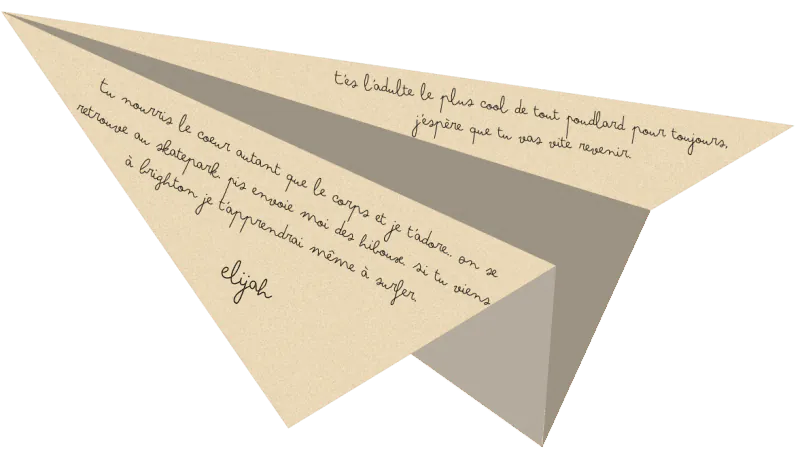 t'es l'adulte le plus cool de tout poudlard pour toujours,
j'espère que tu vas vite revenir.
tu nourris le coeur autant que le corps et je t'adore.. on se
retrouve au skatepark. pis envoie moi des hiboux. si tu viens
à brighton je t'apprendrai même à surfer.
elijah